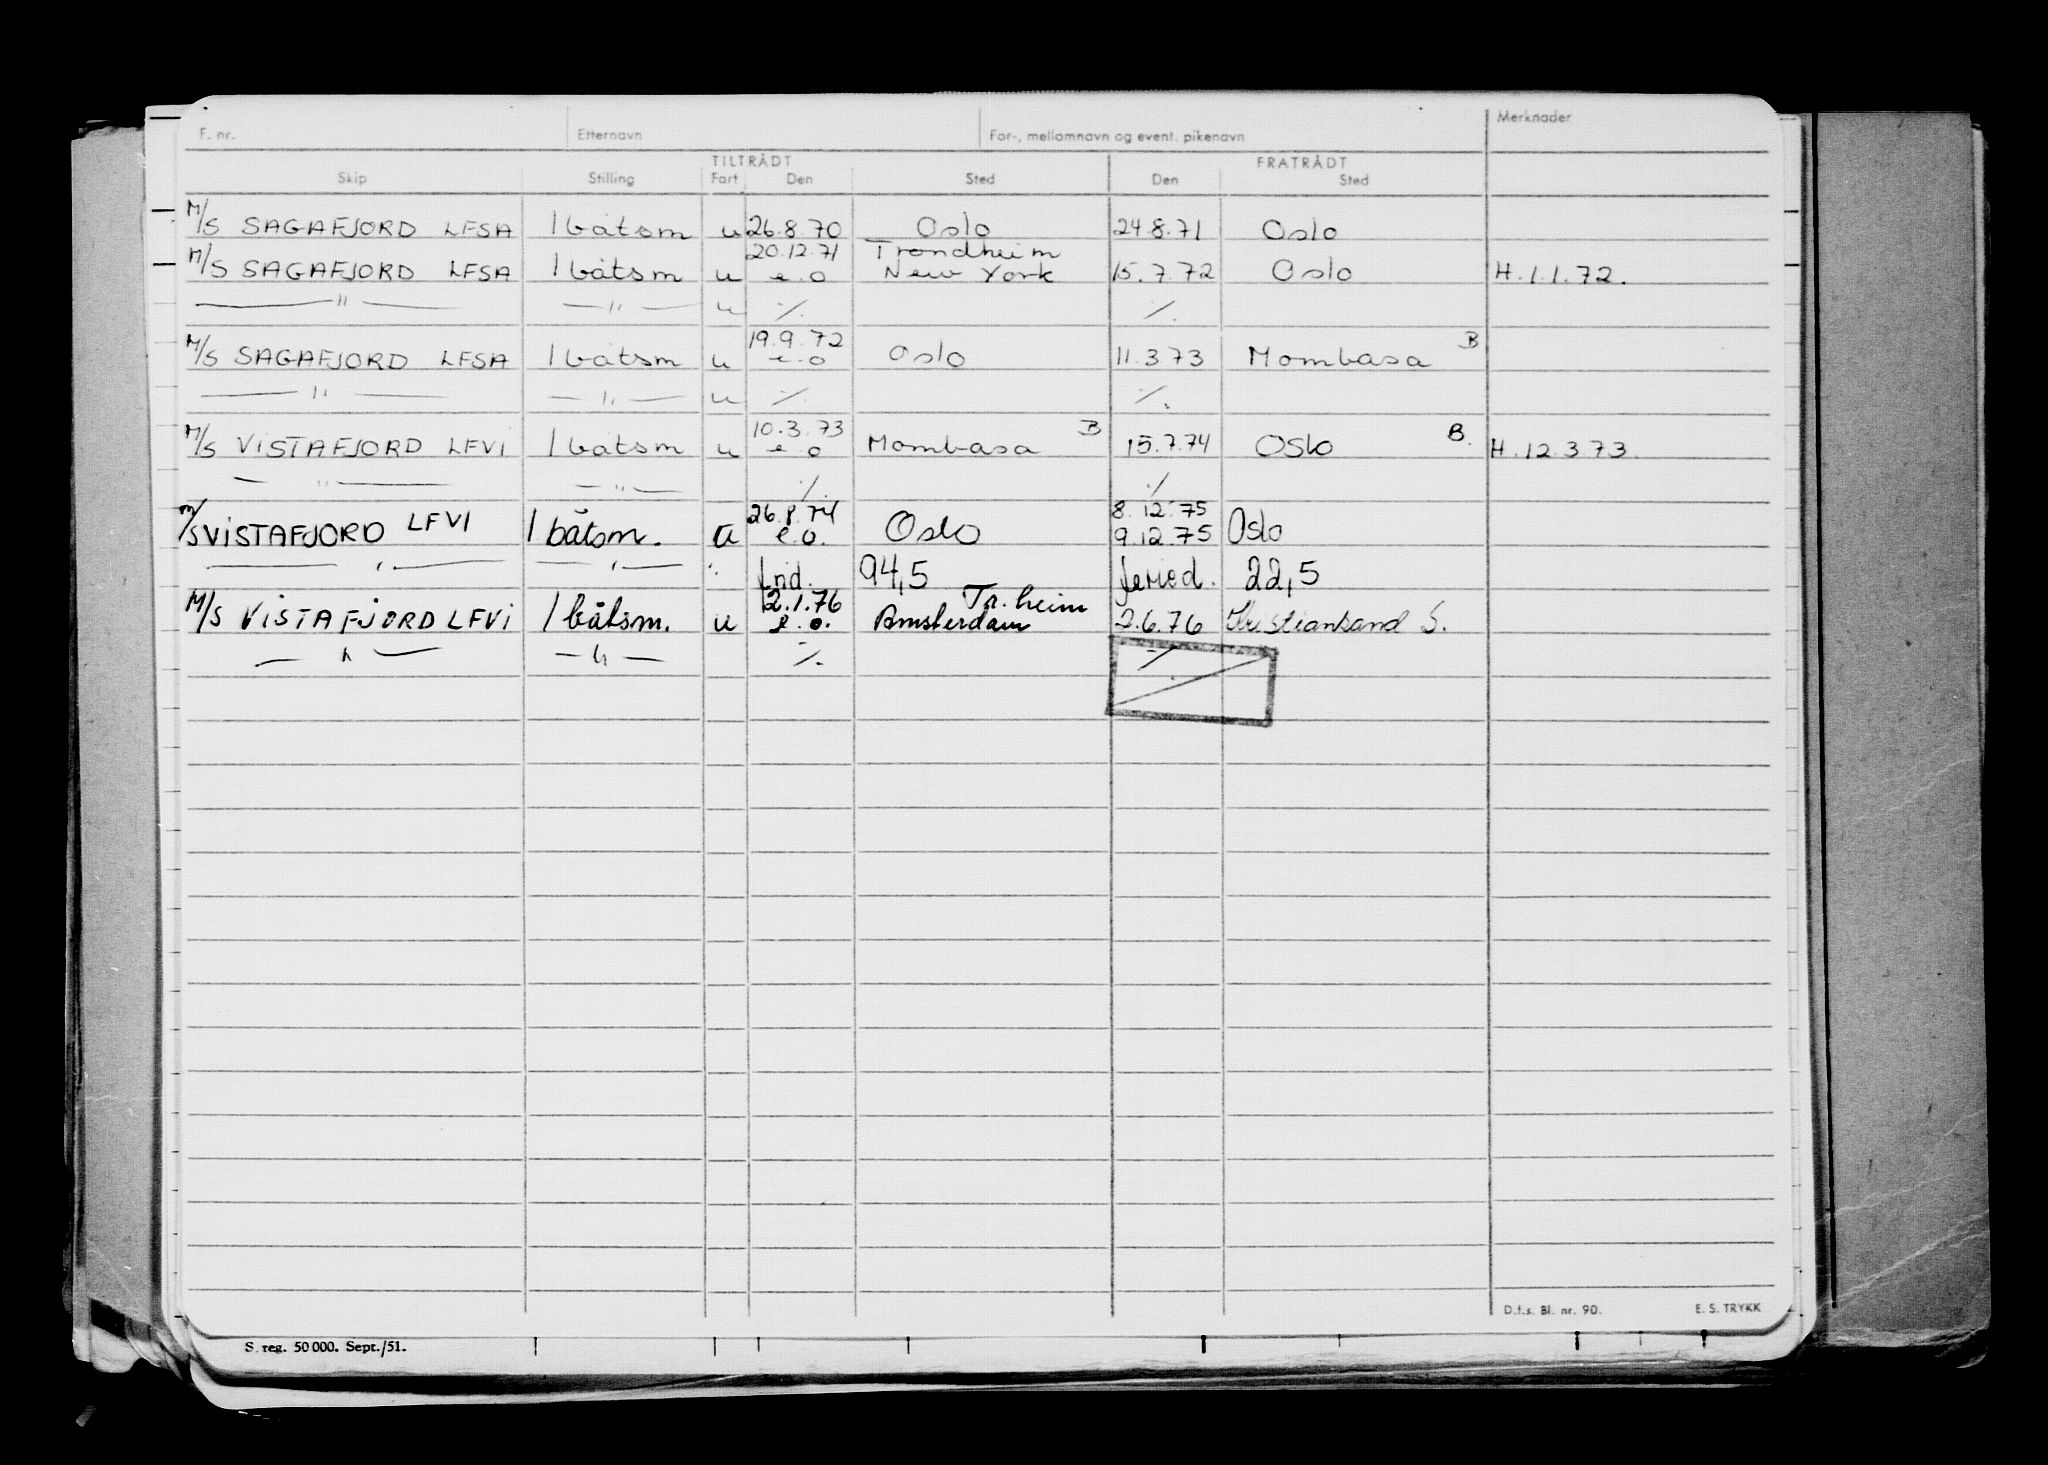 F. nr. Etternavn For-, mellomnavn og event. pikenavn Merknader
TILTRÅDT FRATRÅDT
Skip Stilling Fart Den Sted Den Sted
M/S SAGAFJORD LFSA 1 båtsm u 26.8.70 Oslo 24.8.71 Oslo
20.12.71 Trondheim
M/S SAGAFJORD LFSA 1 båtsm u e.o New York 15.7.72 Oslo H.1.1.72.
— " — — " — u ·/. ·/.
19.9.72 B
M/S SAGAFJORD LFSA 1 båtsm u e.o Oslo 11.3.73 Mombasa
— " — — " — u ·/. ·/.
10.3.73 B B.
M/S VISTAFJORD LFVI 1 båtsm u e.o Mombasa 15.7.74 Oslo H.12.3.73.
— " — — " — ·/. ·/
26.8.74 8.12.75
M/S VISTAFJORD LFVI 1 båtsm. u e.o. Oslo 9.12.75 Oslo
— " — — " — frid. 94,5 feried. 22,5
2.1.76 Tr.heim
M/S VISTAFJORD LFVI 1 båtsm. u e.o. Amsterdam 2.6.76 Kristiansand S.
— " — — " — ·/. ·/.
D.f.s. Bl. nr. 90. E. S. TRYKK
S. reg. 50 000. Sept./51.